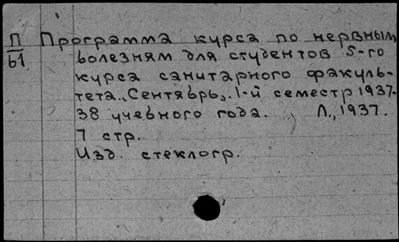 П Программа курса по нервным
61 болезням для студентов 5-го
курса санитарного факуль-
тета. "Сентябрь". 1-й семестр 1937-
38 учебного года. Л., 1937.
7 стр.
Изд. стеклогр.